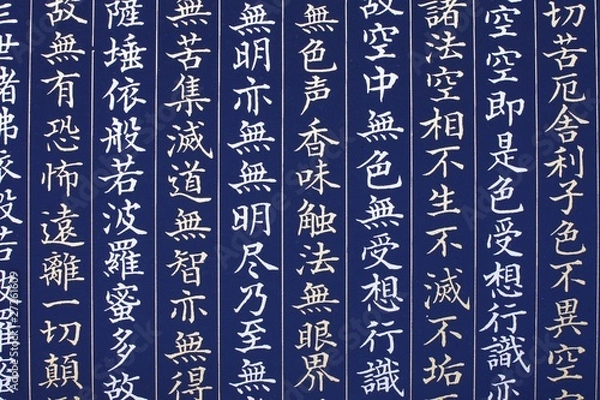 切苦厄舎利子色不異空空
空空即是色受想行識亦
諸法空相不生不滅不垢不
故空中無色無受想行識
無色声香味触法無眼界
無明亦無無明尽乃至無
無苦集滅道無智亦無得
薩埵依般若波羅蜜多故
故無有恐怖遠離一切顛
三世諸佛依般若波羅
Adobe Stock